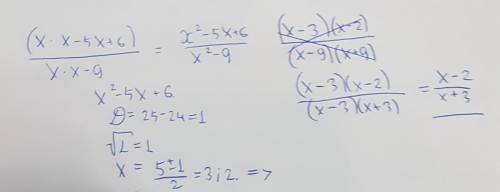 (x · x-5x+6) / x · x-9 = x²-5x+6 / x²-9
(x-3)(x-2) / (x-9)(x+9)
x²-5x+6
D=25-24=1
√1=1
x = 5±1 / 2 = 3 i 2. =>
(x-3)(x-2) / (x-3)(x+3) = x-2 / x+3